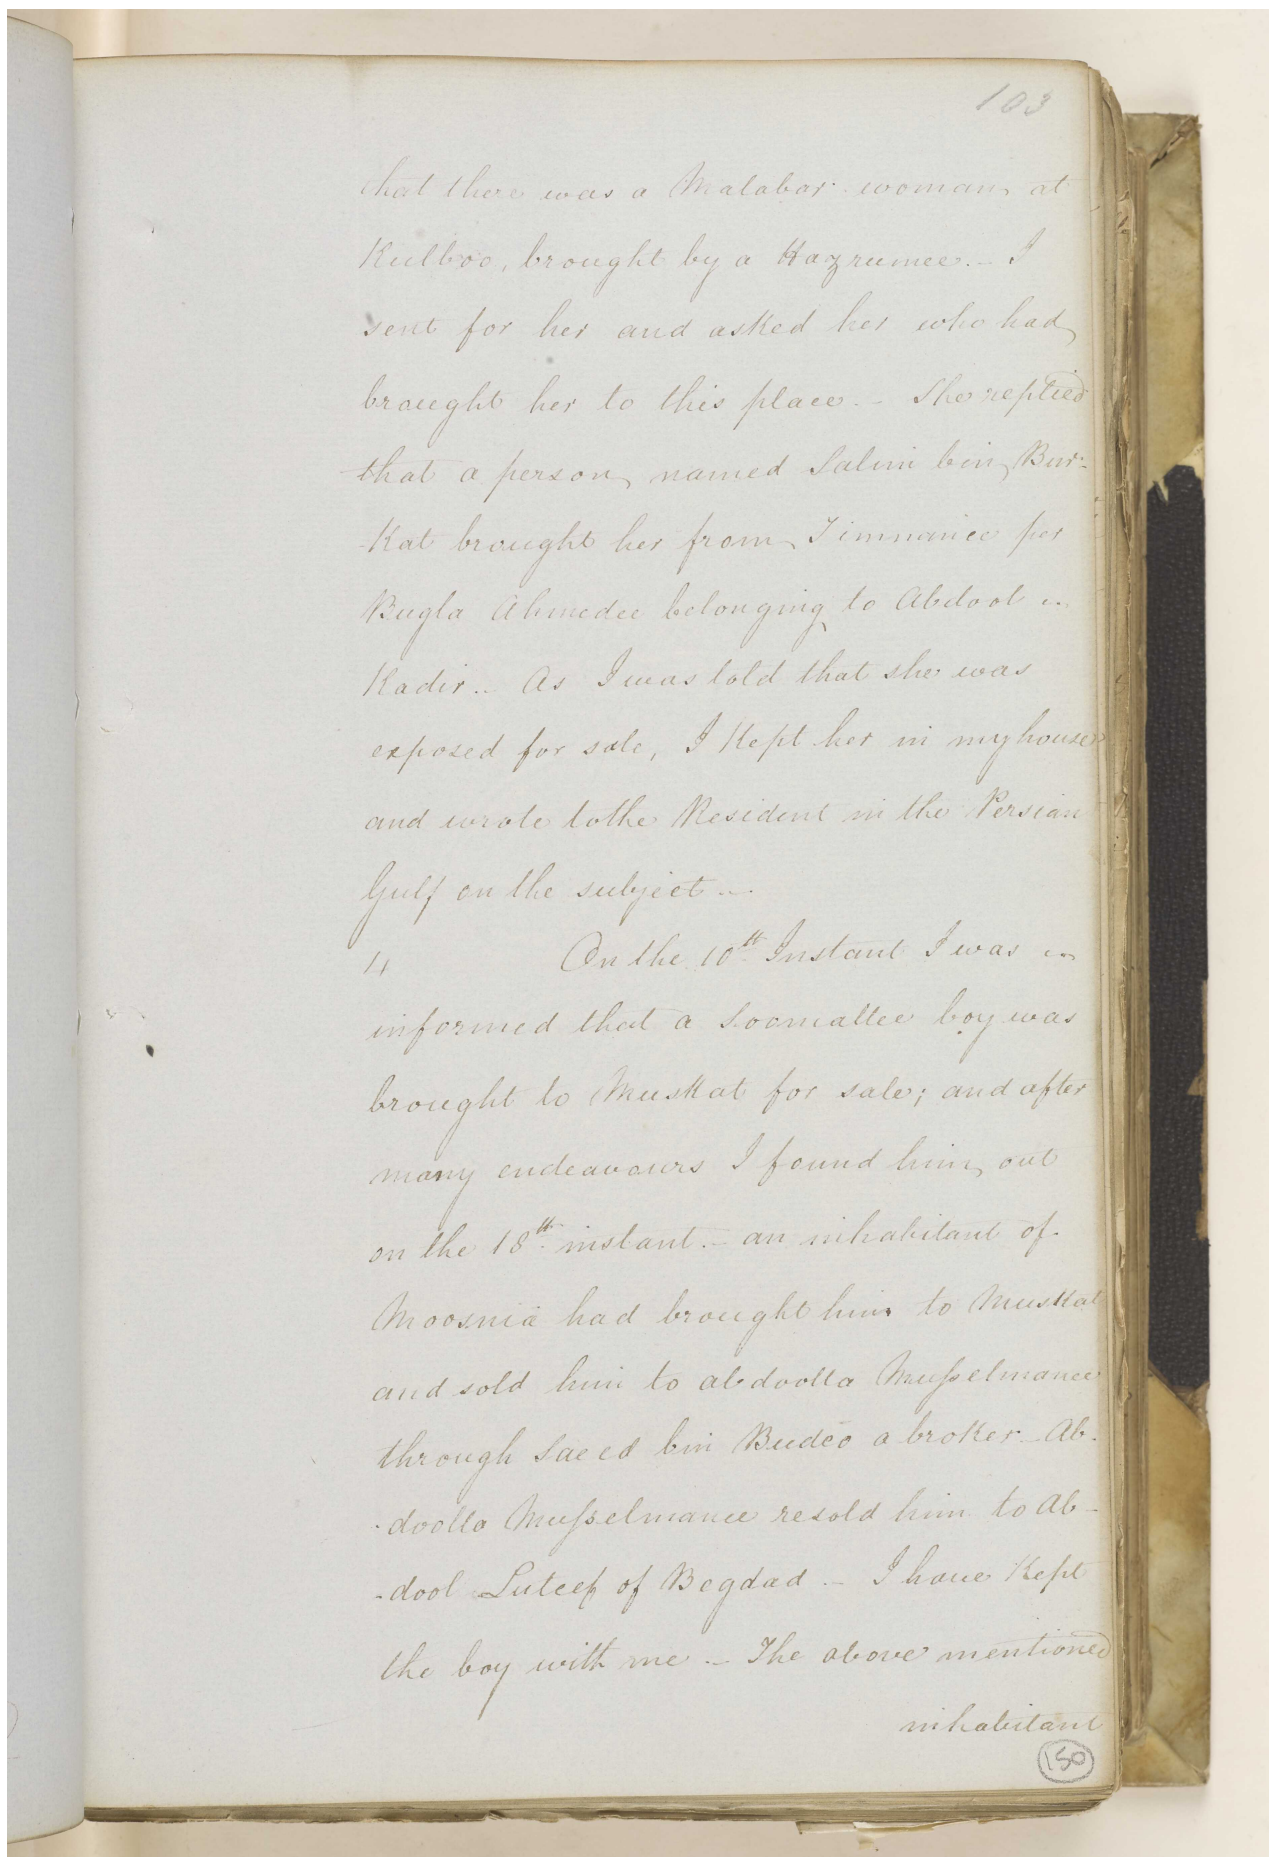 103
that there was a Malabar woman at
Kulboo, brought by a Hazrumee. – I
sent for her and asked her who had
brought her to this place. – She replied
that a person named Salim bin Bur-
-kat brought her from Timnanee per
Bugla Ahmedee belonging to Abdool
Kadir. – As I was told that she was
exposed for sale, I kept her in my house
and wrote to the Resident in the Persian
Gulf on the subject –
4 On the 10th Instant I was
informed that a Soomallee boy was
brought to Muskat for sale; and after
many endeavours I found him out
on the 18th instant. – an inhabitant of
Moosnia had brought him to Muskat
and sold him to abdoolla Musselmanee
through Saeed bin Budeo a broker – Ab-
-doolla Musselmanee resold him to Ab-
-dool Luteef of Begdad – I have kept
the boy with me – The above mentioned
inhabitant
150